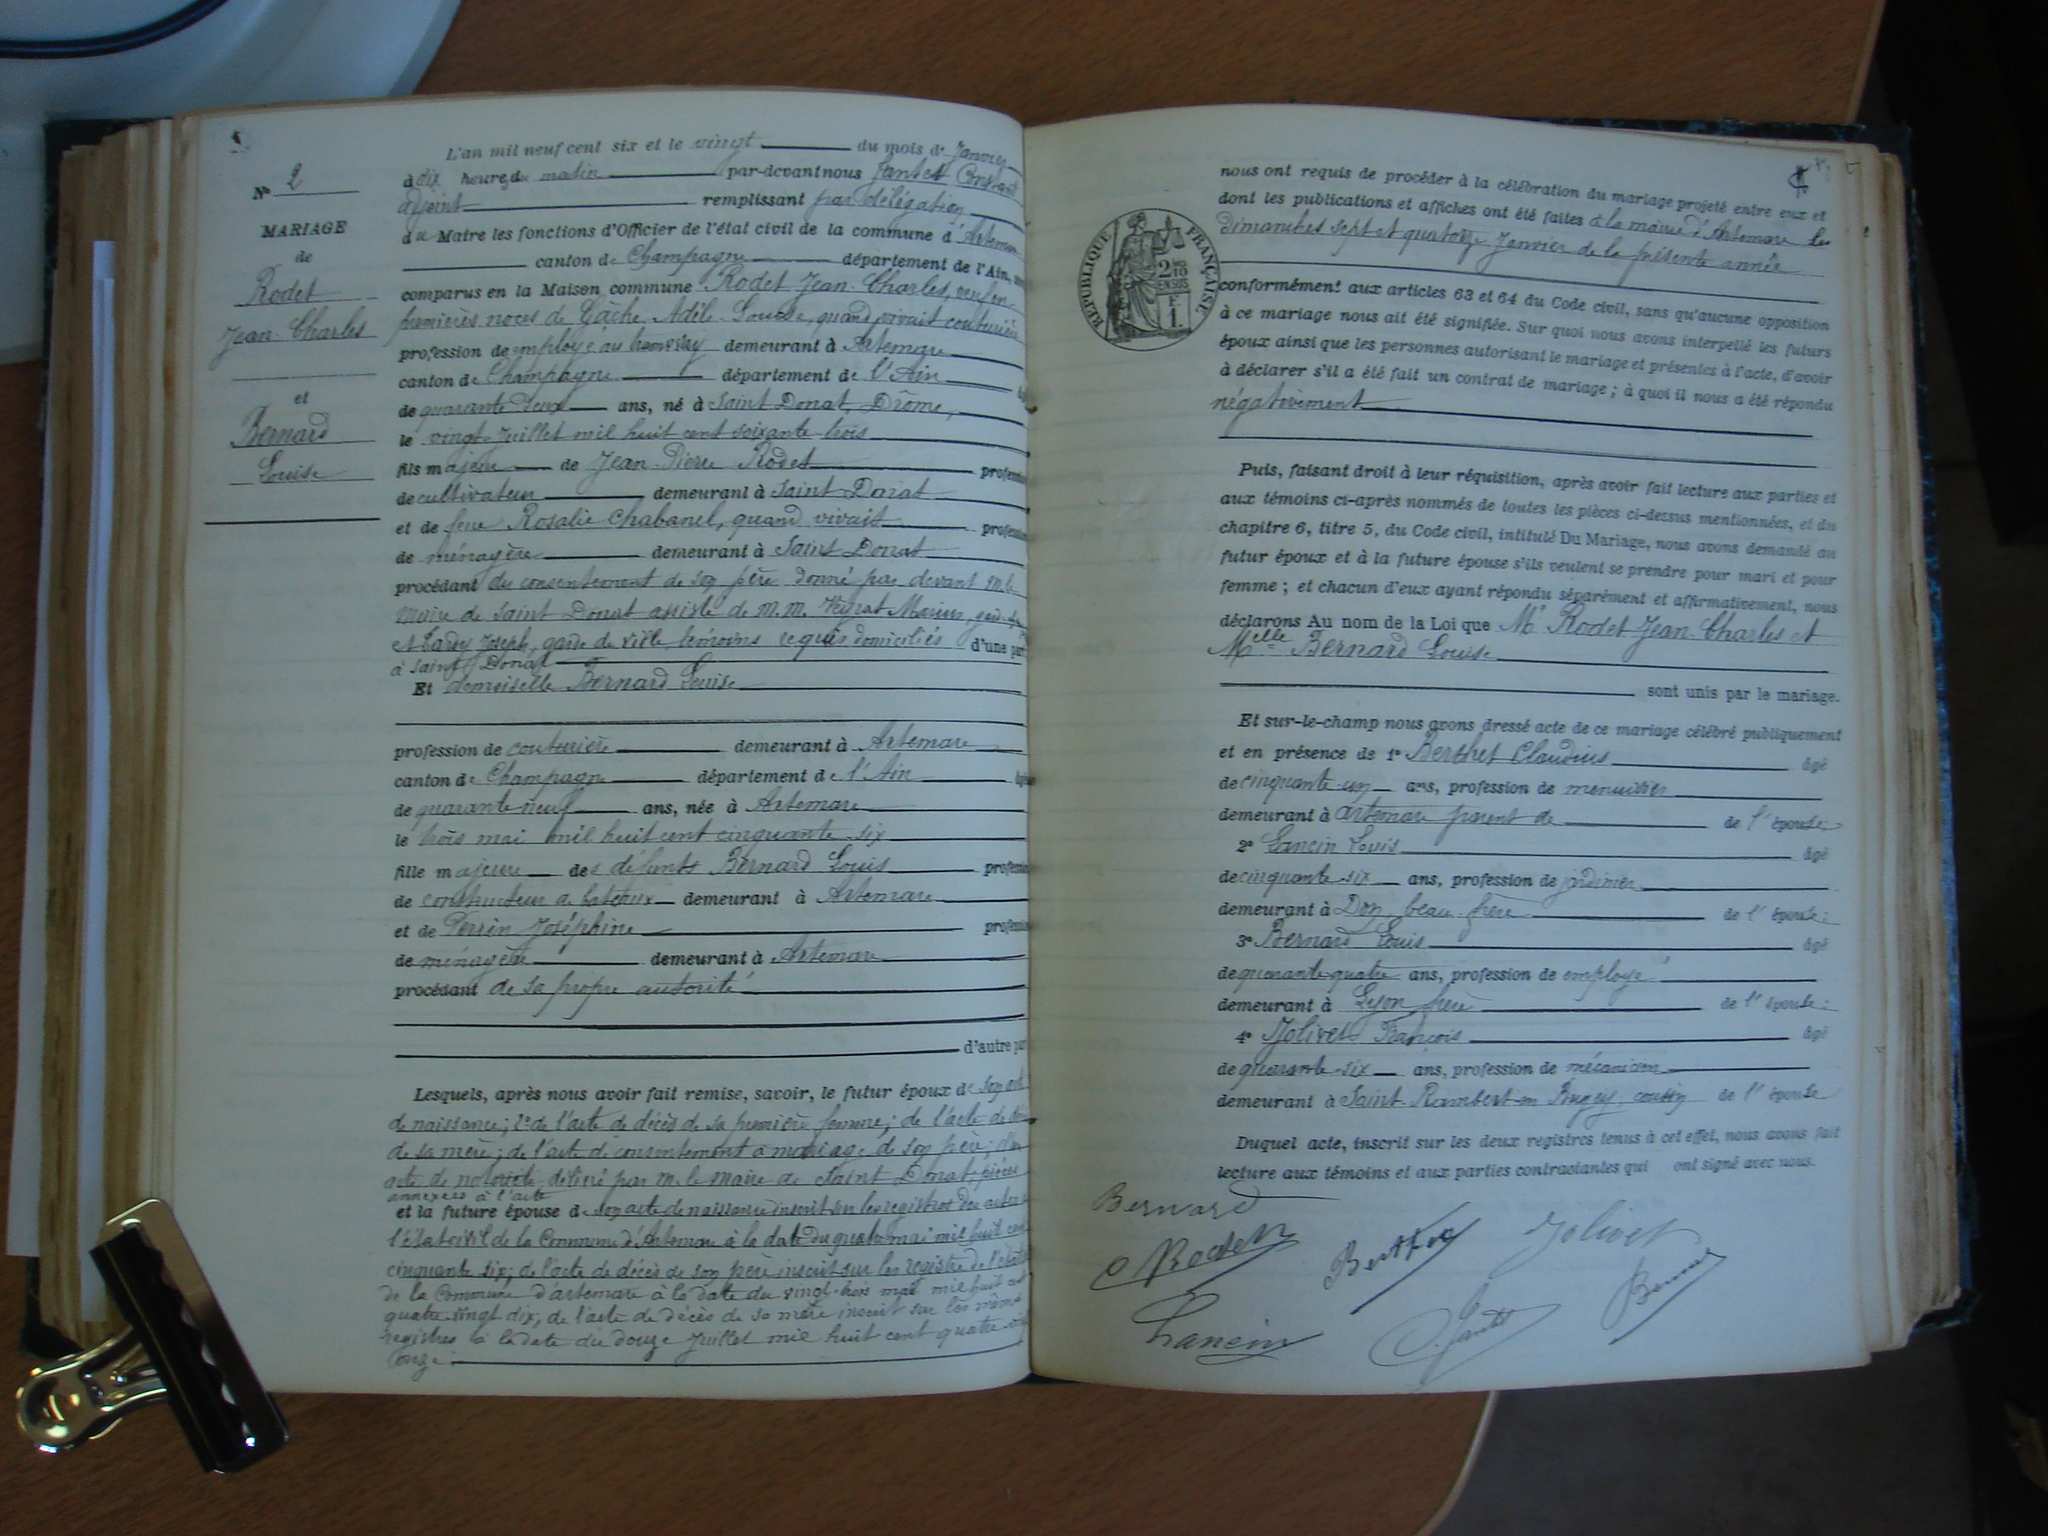 L'an mil neuf cent six et le vingt du mois de Janvier
N° 2
à dix heures du matin par-devant nous Constant
adjoint remplissant par délégation
MARIAGE
du Maire les fonctions d'Officier de l'état civil de la commune d'Artemare
de
canton de Champagne département de l'Ain,
Rodet
comparus en la Maison commune Rodet Jean-Charles, veuf en
Jean-Charles
premières noces de Gâche Adèle-Louise, quand vivait couturière
profession de employé au demeurant à Artemare
canton de Champagne département de l'Ain
et
de quarante-deux ans, né à Saint Donat, Drôme,
Bernard
le vingt Juillet mil huit cent soixante-trois
Louise
fils majeur de Jean-Pierre Rodet profession
de cultivateur demeurant à Saint-Donat
et de feue Rosalie Chabanel, quand vivait profession
de ménagère demeurant à Saint Donat
procédant du consentement de son père donné par devant M. le
Maire de Saint Donat assisté de M.M. Veyrat Marius,
et Joseph, garde de ville témoins requis domiciliés d'une part
à Saint Donat
Et demoiselle Bernard Louise
profession de couturière demeurant à Artemare
canton de Champagne département de l'Ain
de quarante-neuf ans, née à Artemare
le trois mai mil huit cent cinquante-six
fille majeure des défunts Bernard Louis profession
de constructeur de bateaux demeurant à Artemare
et de Perrin Joséphine profession
de ménagère demeurant à Artemare
procédant de sa propre autorité
d'autre part
Lesquels, après nous avoir fait remise, savoir, le futur époux de son acte
de naissance; 2° de l'acte de décès de sa première femme; de l'acte de décès
de sa mère; de l'acte de consentement à mariage de son père; d'un
acte de notoriété délivré par M. le Maire de Saint Donat, pièces
annexées à l'acte
et la future épouse de son acte de naissance inscrit sur les registres des actes de
l'état civil de la Commune d'Artemare à la date du quatre mai mil huit cent
cinquante six; de l'acte de décès de son père inscrit sur les registres de l'état
de la Commune d'Artemare à la date du vingt-trois mai mil huit cent
quatre vingt dix, de l'acte de décès de sa mère inscrit sur les mêmes
registres à la date du douze Juillet mil huit cent quatre vingt
onze.
nous ont requis de procéder à la célébration du mariage projeté entre eux et
dont les publications et affiches ont été faites à la mairie d'Artemare les
dimanches sept et quatorze Janvier de la présente année
RÉPUBLIQUE FRANÇAISE
2 10
EN SUS
F.
1.
conformément aux articles 63 et 64 du Code civil, sans qu'aucune opposition
à ce mariage nous ait été signifiée. Sur quoi nous avons interpellé les futurs
époux ainsi que les personnes autorisant le mariage et présentes à l'acte, d'avoir
à déclarer s'il a été fait un contrat de mariage ; à quoi il nous a été répondu
négativement
Puis, faisant droit à leur réquisition, après avoir fait lecture aux parties et
aux témoins ci-après nommés de toutes les pièces ci-dessus mentionnées, et du
chapitre 6, titre 5, du Code civil, intitulé Du Mariage, nous avons demandé au
futur époux et à la future épouse s'ils veulent se prendre pour mari et pour
femme ; et chacun d'eux ayant répondu séparément et affirmativement, nous
déclarons Au nom de la Loi que Mr Rodet Jean-Charles et
Melle Bernard Louise
sont unis par le mariage.
Et sur-le-champ nous avons dressé acte de ce mariage célébré publiquement
et en présence de 1° Berthet Claudius âgé
de cinquante-un ans, profession de menuisier
demeurant à Artemare parent de de l'épouse;
2° Lancin Louis âgé
de cinquante-six ans, profession de jardinier
demeurant à Don beau-frère de l'épouse;
3° Bernard Louis âgé
de quarante-quatre ans, profession de employé
demeurant à Lyon frère de l'épouse;
4° Jolivet François âgé
de quarante-six ans, profession de mécanicien
demeurant à Saint-Rambert-en Bugey, cousin de l'épouse
Duquel acte, inscrit sur les deux registres tenus à cet effet, nous avons fait
lecture aux témoins et aux parties contractantes qui ont signé avec nous.
Bernard
Rodet Berthet Jolivet
Lancin